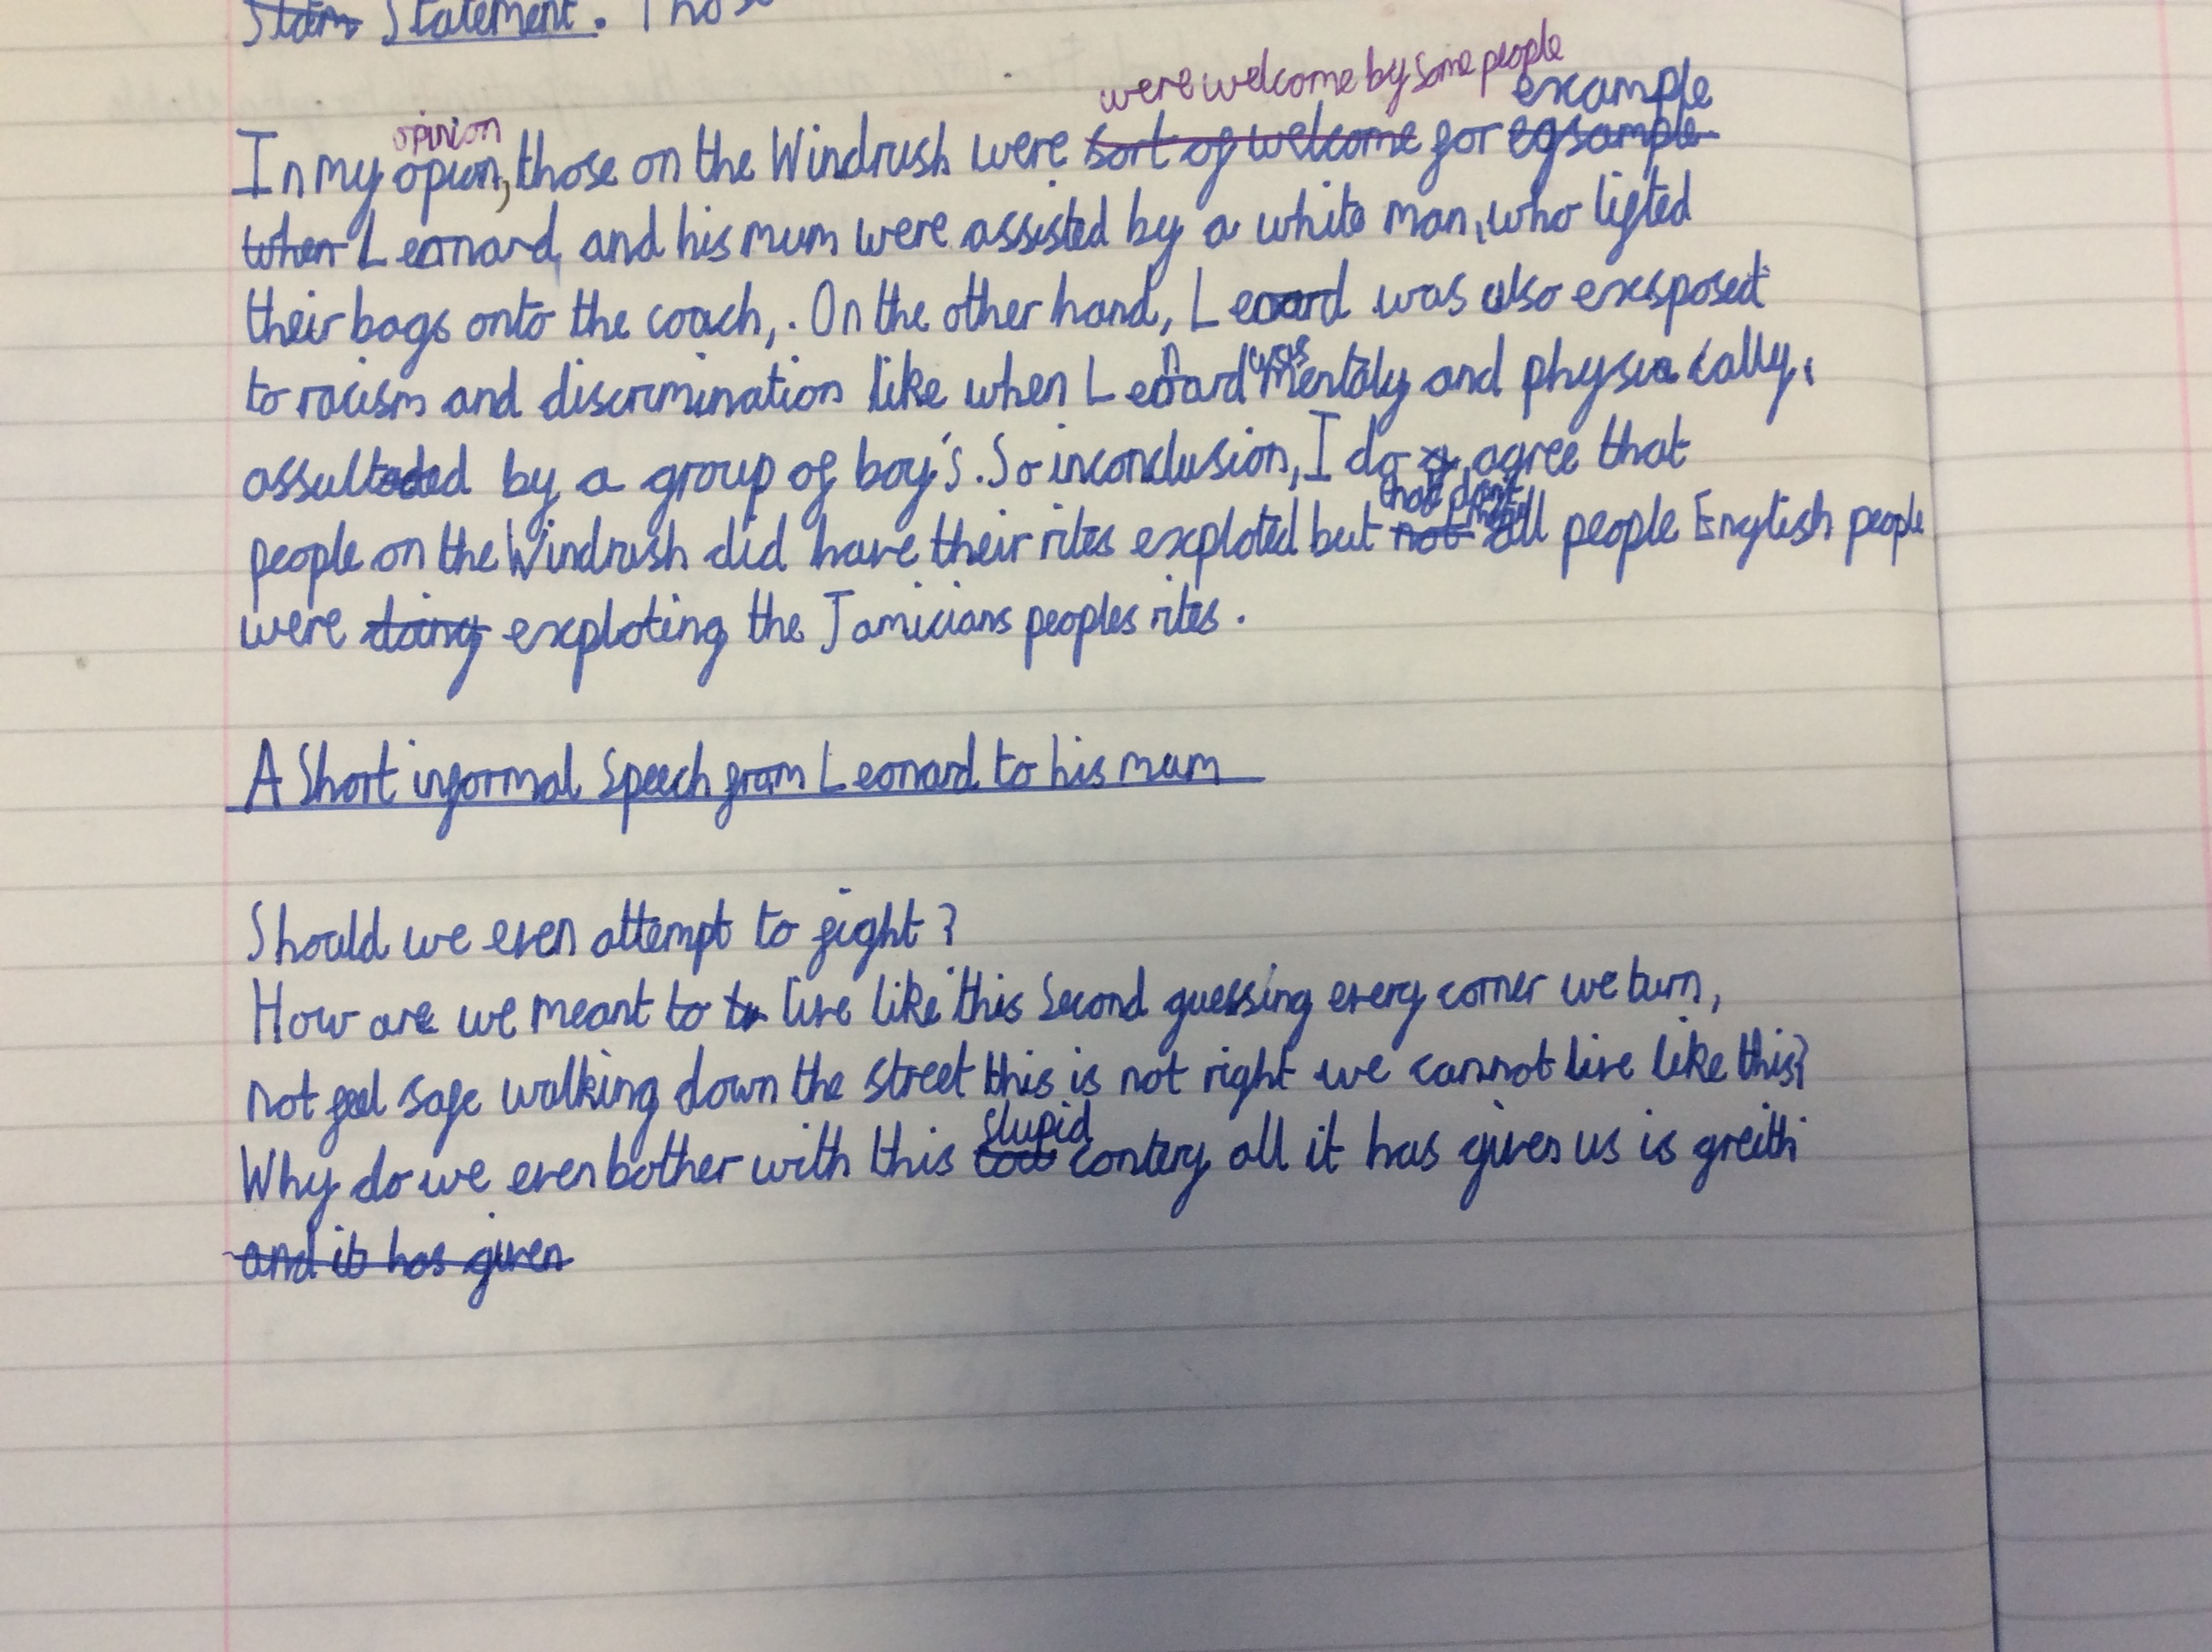 Statement. Thos
were welcome by some people
opinion example
In my opuon, those on the Windrush were sort of welcome for egsample
when Leonard and his mum were assisted by a white man, who lifted
their bags onto the coach,. On the other hand, Leoard was also exsposed
was
to racism and discrimination like when Leonard mentaly and physically,
assulted by a group of boy's. So inconclusion, I do agree that
that dont mean
people on the Windrush did have their rites exploted but not all people English people
were doing exploting the Jamicians peoples rites.
A Short informal Speech from Leonard to his mum
Should we even attempt to fight?
How are we meant to live like this second guessing every corner we turn,
not feel safe walking down the street this is not right we cannot live like this?
stupid
Why do we even bother with this contery all it has given us is greith
and it has given